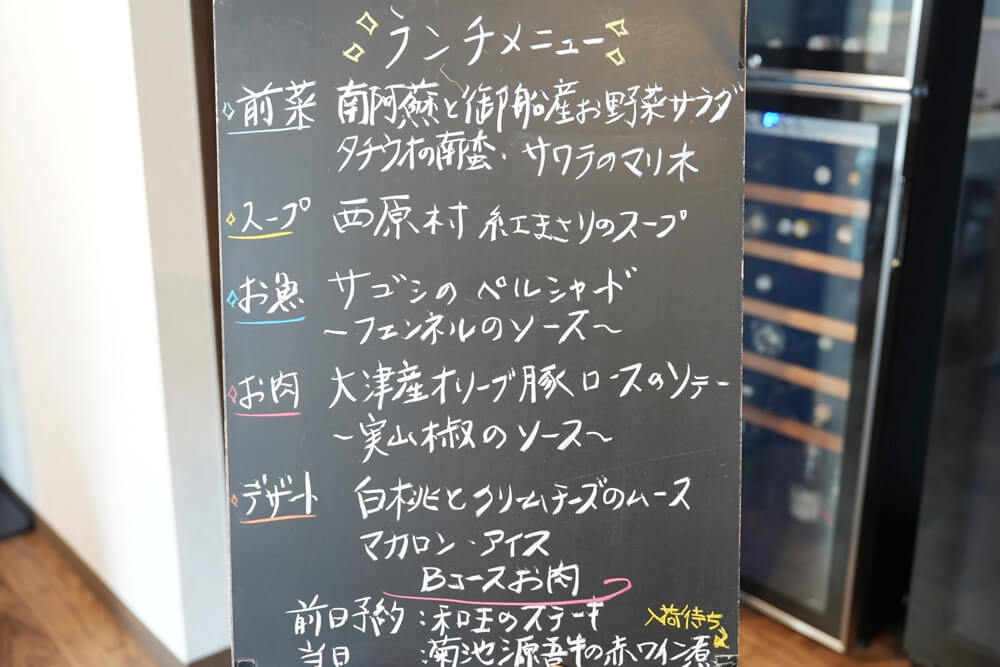 ランチメニュー
前菜 南阿蘇と御船産お野菜サラダ
タチウオの南蛮・サワラのマリネ
スープ 西原村 紅まさりのスープ
お魚 サゴシのペルシャード
~フェンネルのソース~
お肉 大津産オリーブ豚ロースのソテー
~実山椒のソース~
デザート 白桃とクリームチーズのムース
マカロン・アイス
Bコースお肉
前日予約:和王のステーキ 入荷待ち
当日 :菊池源吾牛の赤ワイン煮